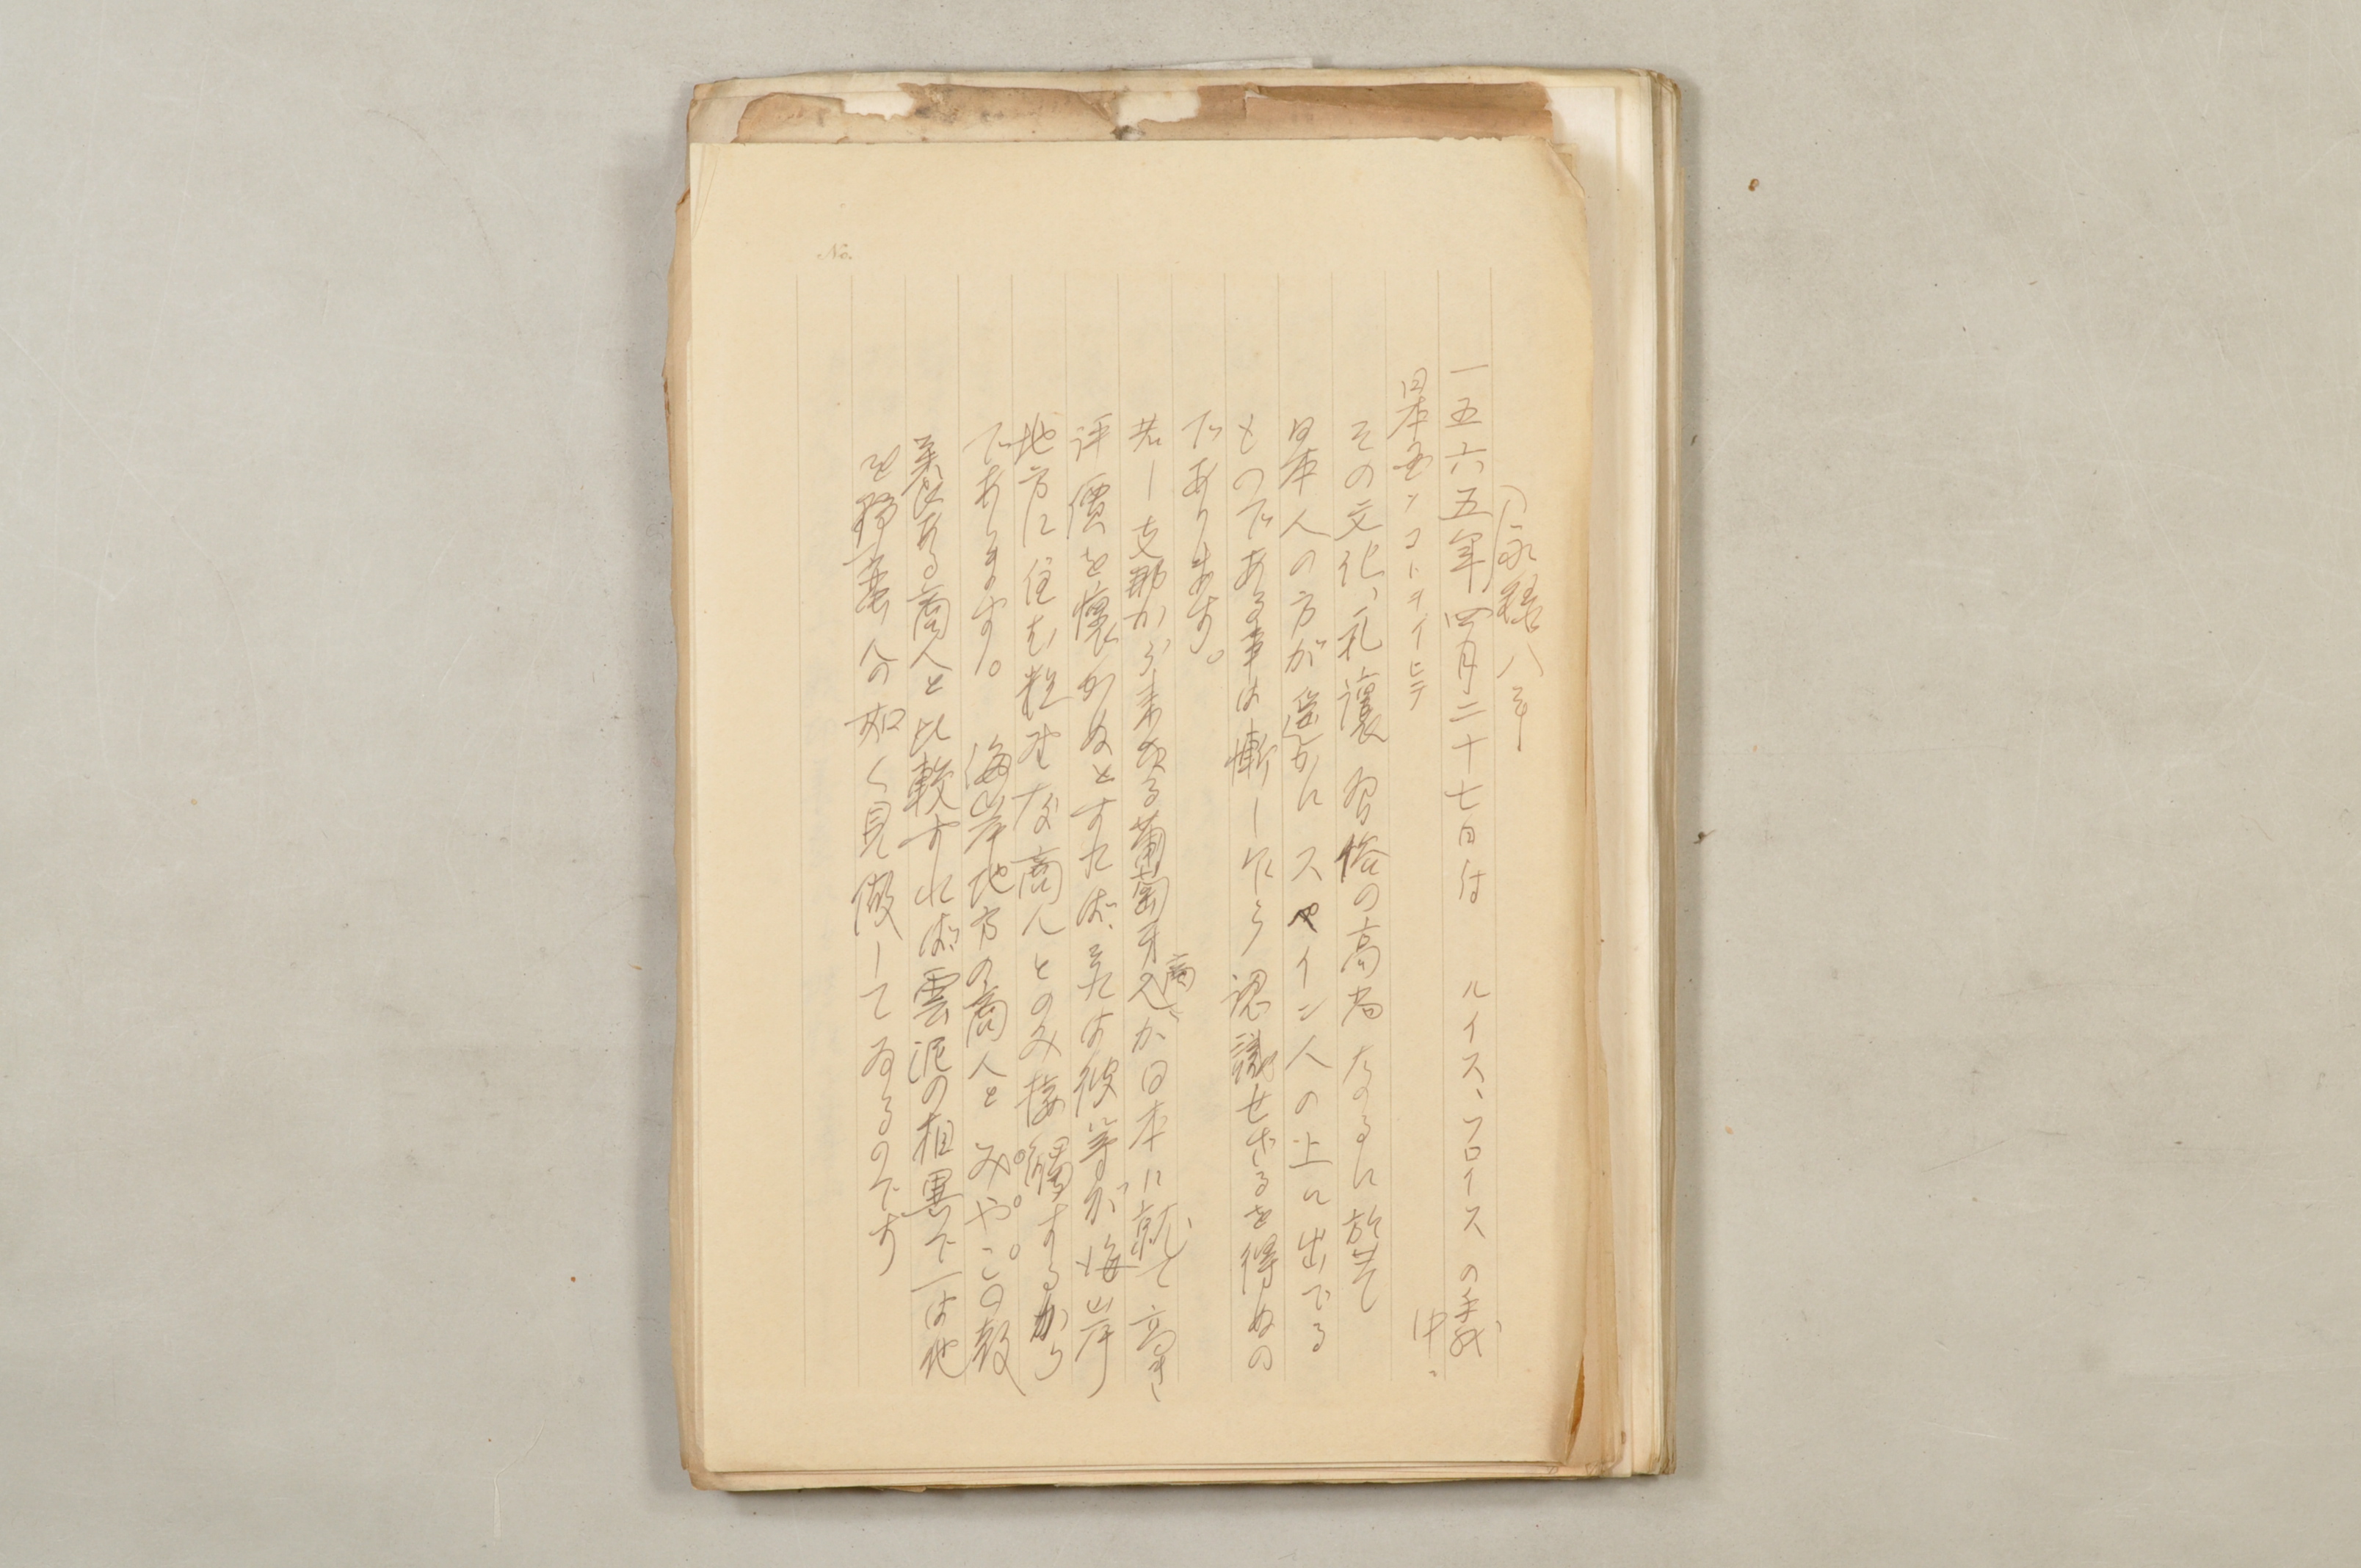 (永禄八年
一五六五年四月二十七日付 ルイス、フロイスの手
中、
日本
その文化、礼讓 習俗の高尚なるに於て
日本人の方が遥かにスペイン人の上に出でる
ものである事は慚しながら認識せざるを得ぬの
であります。
若し支那から来る葡萄牙商人が日本に就て高き
評價を懐かぬとすれば、それは彼等が海岸
地方に住む粗野な商人とのみ接觸するから
であります。 海岸地方の商人とみやこの教
養ある商人と比較すれば雲泥の相異で一は他
を野蛮人の如く見做してゐるのです
No.